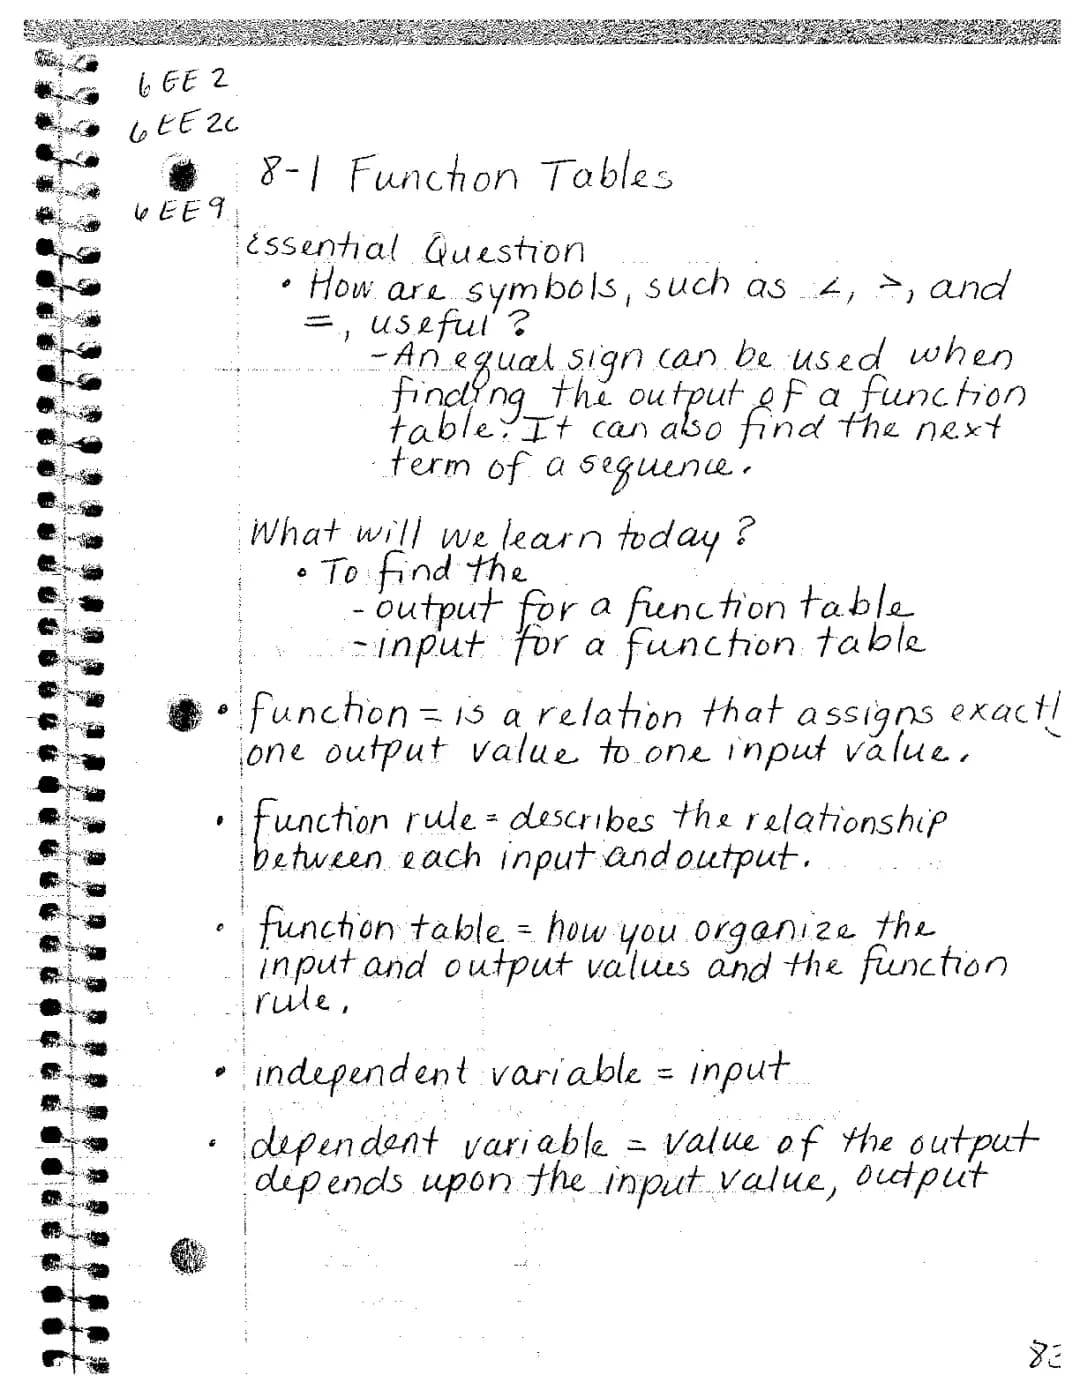 6 EE 2
6 EE 2c
8-1 Function Tables
6 EE 9
Essential Question
• How are symbols, such as <, >, and
=, useful?
- An equal sign can be used when
finding the output of a function
table. It can also find the next
term of a sequence.
What will we learn today?
• To find the
- output for a function table
- input for a function table
• function = is a relation that assigns exactl
one output value to one input value.
• function rule = describes the relationship
between each input and output.
• function table = how you organize the
input and output values and the function
rule.
• independent variable = input
• dependent variable = value of the output
depends upon the input value, output